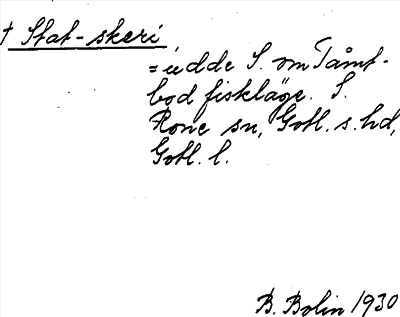 † Stat-skeri
= udde S. om Tåmt-
bod fiskläge. S.
Rone sn, Gotl. s. hd,
Gotl. l.
B. Bolin 1930